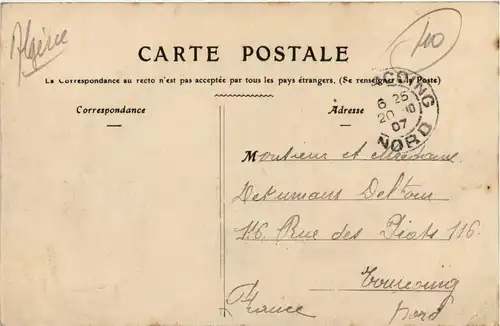 Algérie
40
CARTE POSTALE
La Correspondance au recto n'est pas acceptée par tous les pays étrangers. (Se renseigner à la Poste)
Correspondance
Adresse
COING
6 25
20
07
NORD
Monsieur et Madame
Delton
116 Rue des Piats 116
Tourcoing
France
Nord